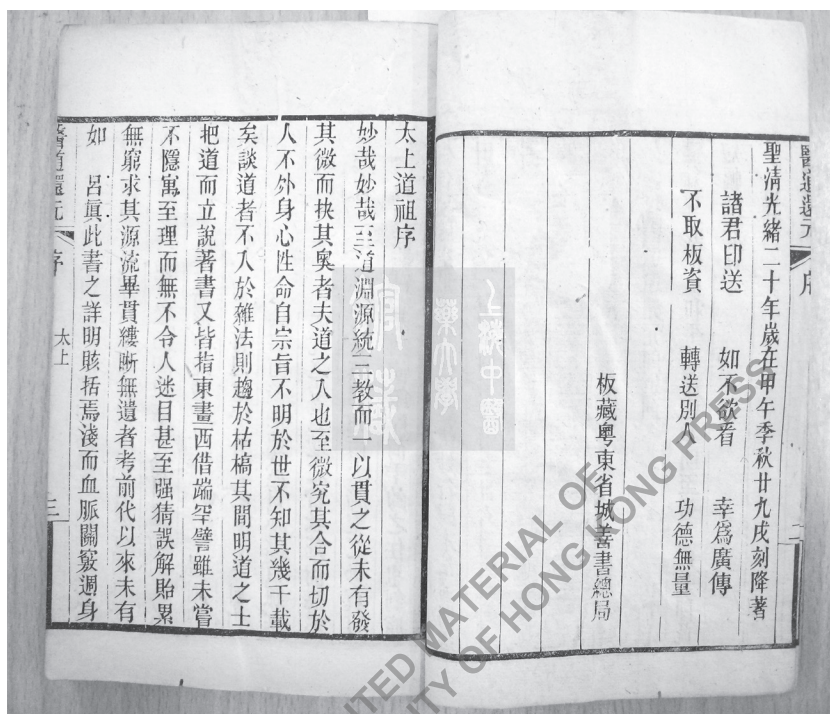 醫道還元 序 二
聖清光緒二十年歲在甲午季秋廿九戌刻降著
諸君印送 如不欲看 幸爲廣傳
不取板資 轉送別人 功德無量
板藏粵東省城善書總局
太上道祖序
妙哉妙哉至道淵源統三教而一以貫之從未有發
其微而抉其奧者夫道之入也至微究其合而切於
人不外身心性命自宗旨不明於世不知其幾千載
矣談道者不入於雜法則趨於枯槁其間明道之士
把道而立說著書又皆指東畫西借端罕譬雖未嘗
不隱寓至理而無不令人迷目甚至强猜誤解貽累
無窮求其源流畢貫縷晰無遺者考前代以來未有
如 呂眞此書之詳明賅括焉淺而血脈關竅週身
醫道還元 序 太上 三
上海中醫藥大學
館藏
ITED MATERIAL OF
ITY OF HONG KONG PRESS